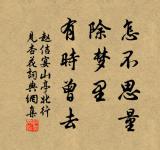 怎不思量
除梦里
有時曾去
赵佶宴山亭北行
見杏花詞典網集